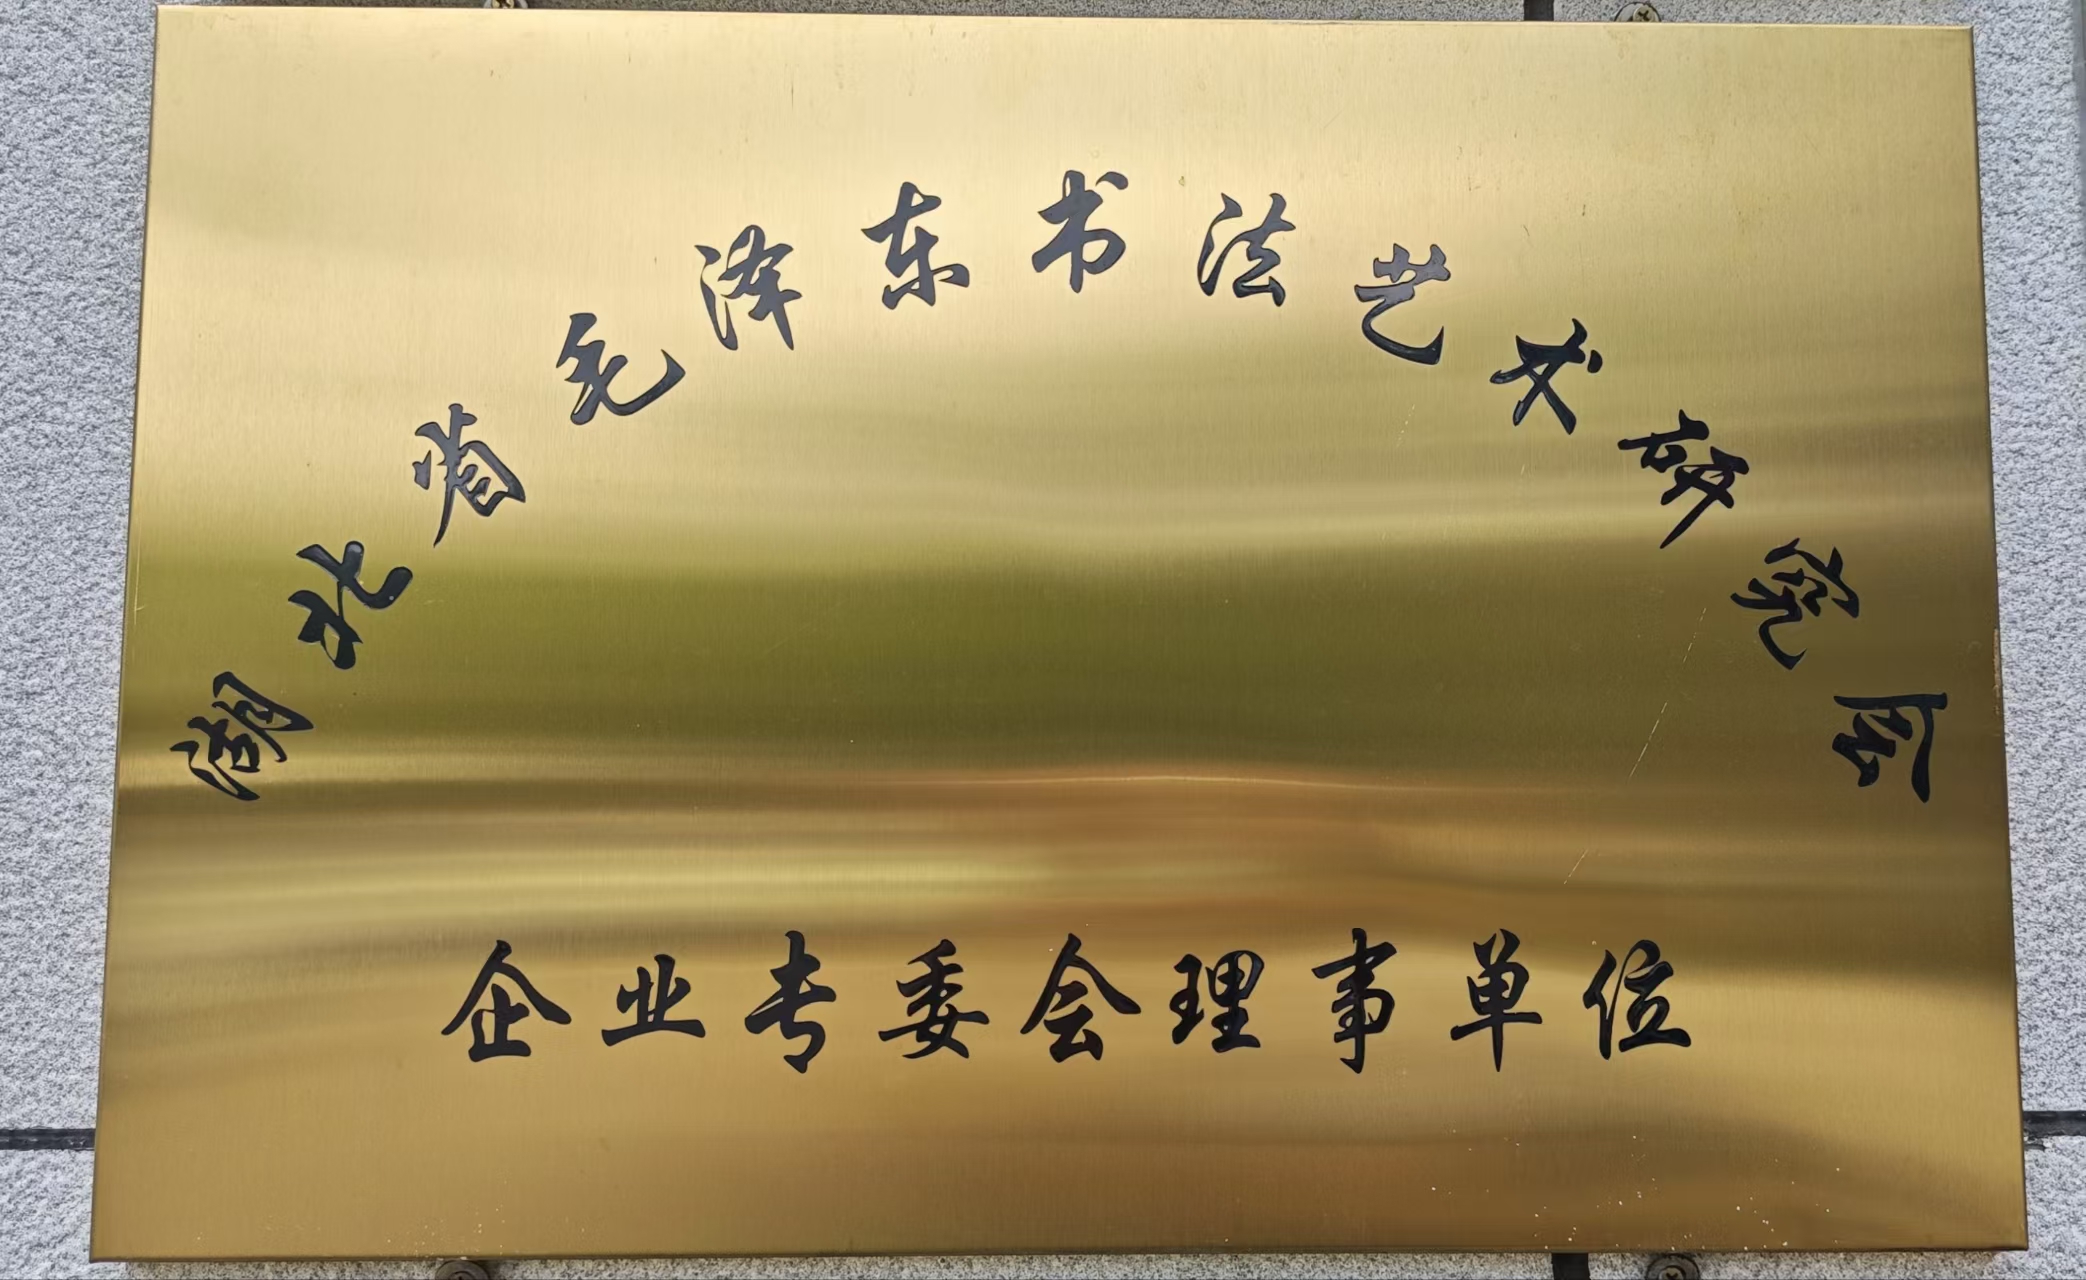 湖北省毛泽东书法艺术研究会
企业专委会理事单位